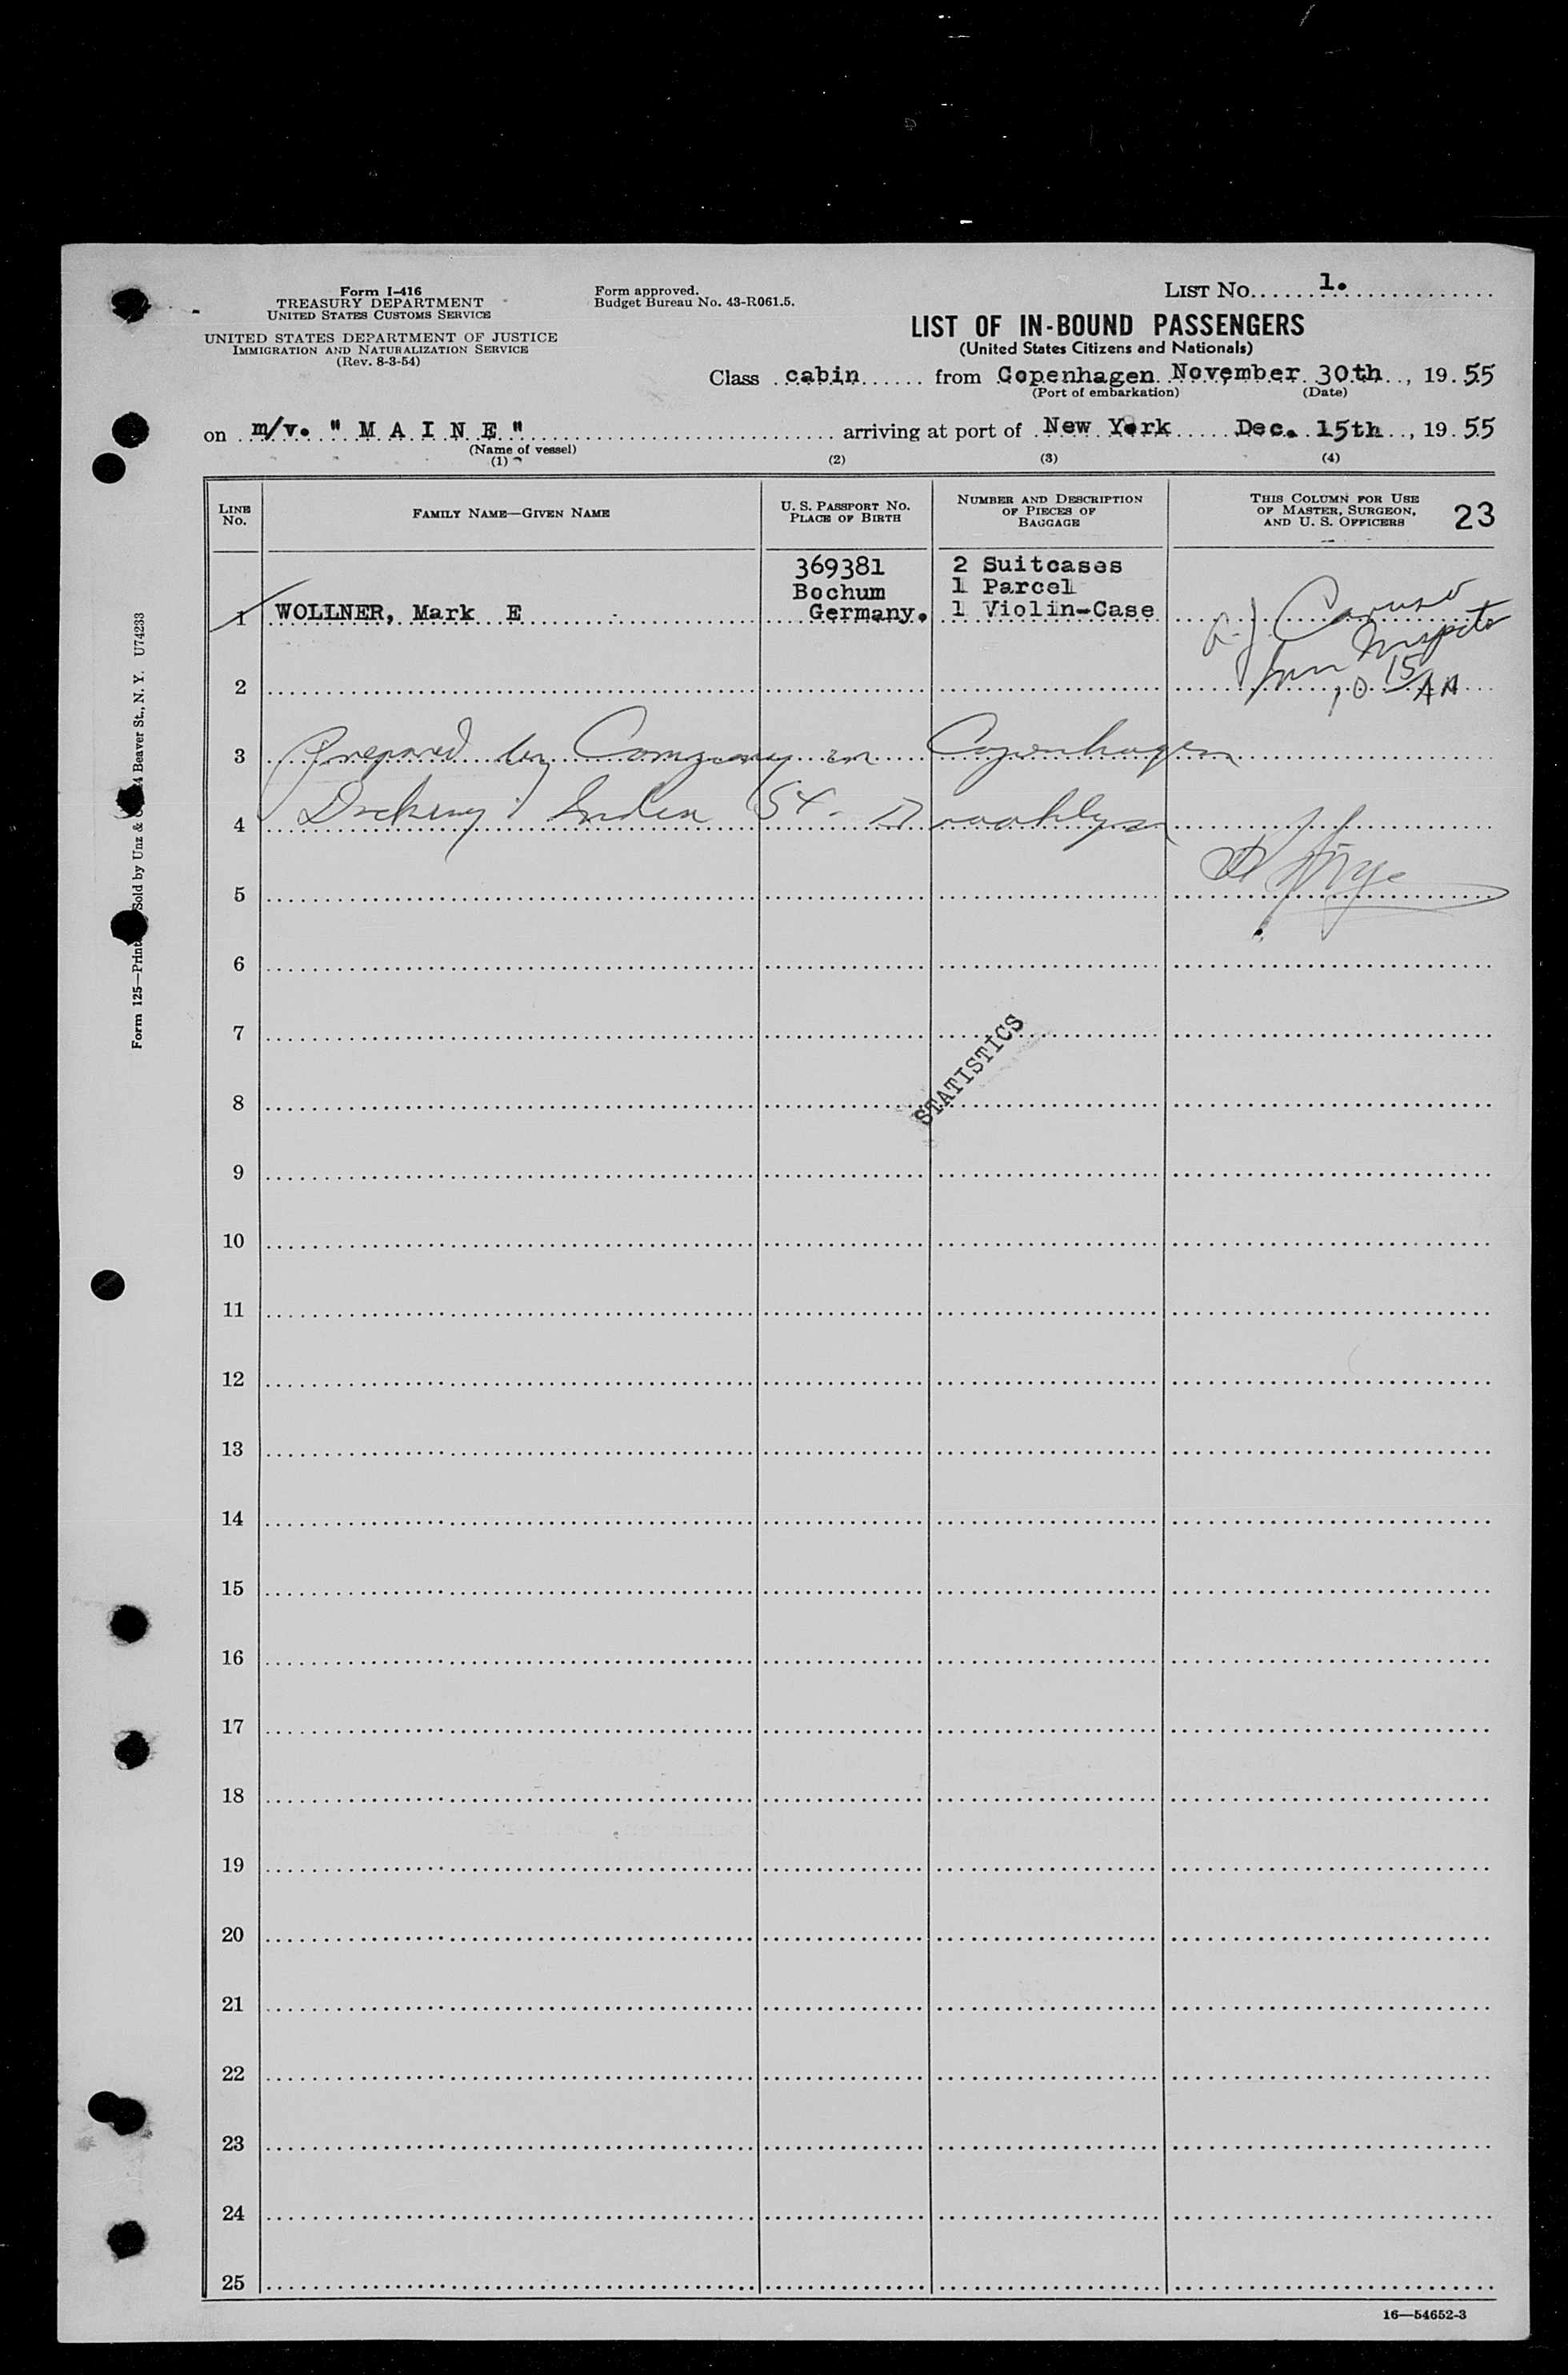 Form I-416
TREASURY DEPARTMENT
UNITED STATES CUSTOMS SERVICE
UNITED STATES DEPARTMENT OF JUSTICE
IMMIGRATION AND NATURALIZATION SERVICE
(Rev. 8-3-54)
Form approved.
Budget Bureau No. 43-R061.5.
LIST NO. 1.
LIST OF IN-BOUND PASSENGERS
(United States Citizens and Nationals)
Class cabin from Copenhagen November 30th, 19 55
(Port of embarkation) (Date)
on m/v. "M A I N E" arriving at port of New York Dec. 15th, 19 55
(Name of vessel)
(1) (2) (3) (4)
LINE NO.
FAMILY NAME—GIVEN NAME
U. S. PASSPORT NO.
PLACE OF BIRTH
NUMBER AND DESCRIPTION
OF PIECES OF
BAGGAGE
THIS COLUMN FOR USE
OF MASTER, SURGEON,
AND U. S. OFFICERS
23
1 WOLLNER, Mark E
369381
Bochum
Germany.
2 Suitcases
1 Parcel
1 Violin-Case
Caruso
Imm Inspector
10 15/AM
2
3 Prepared by Company in Copenhagen
4 Docking: India St. Brooklyn
5
6
7
STATISTICS
8
9
10
11
12
13
14
15
16
17
18
19
20
21
22
23
24
25
16—54652-3
Form 125—Print Sold by Unz & 4 Beaver St., N. Y. U74233